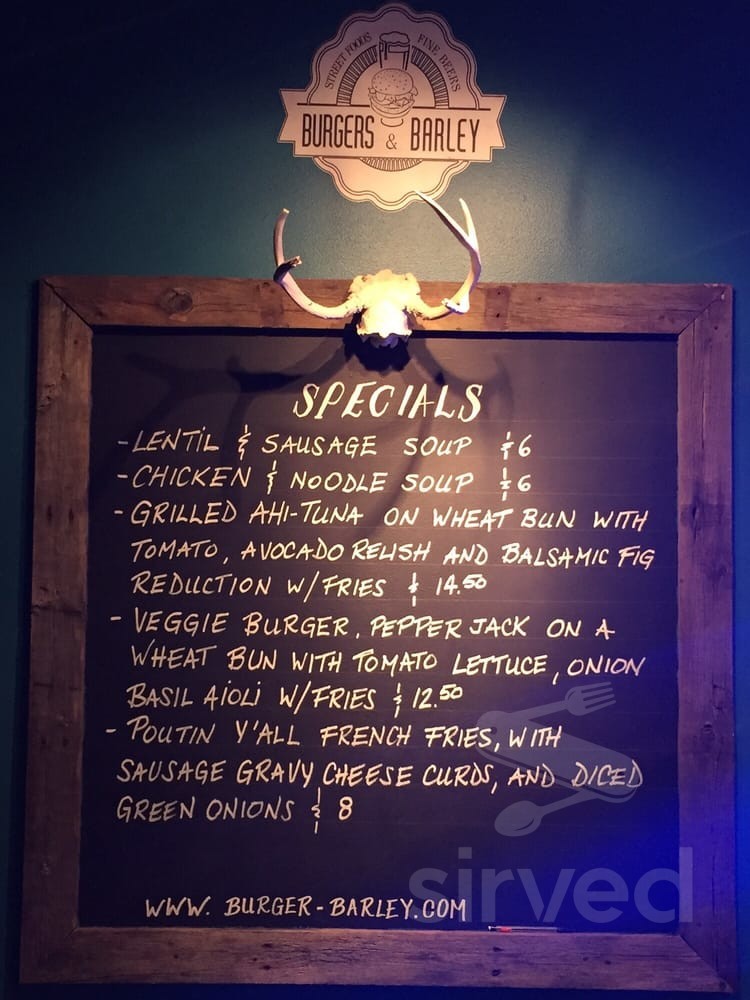 STREET FOODS FINE BEERS
BURGERS & BARLEY
SPECIALS
- LENTIL & SAUSAGE SOUP $6
- CHICKEN & NOODLE SOUP $6
- GRILLED AHI-TUNA ON WHEAT BUN WITH
TOMATO, AVOCADO RELISH AND BALSAMIC FIG
REDUCTION W/FRIES $14.50
- VEGGIE BURGER, PEPPER JACK ON A
WHEAT BUN WITH TOMATO LETTUCE, ONION
BASIL AIOLI W/FRIES $12.50
- POUTIN Y'ALL FRENCH FRIES, WITH
SAUSAGE GRAVY CHEESE CURDS, AND DICED
GREEN ONIONS $8
WWW. BURGER-BARLEY.COM
sirved